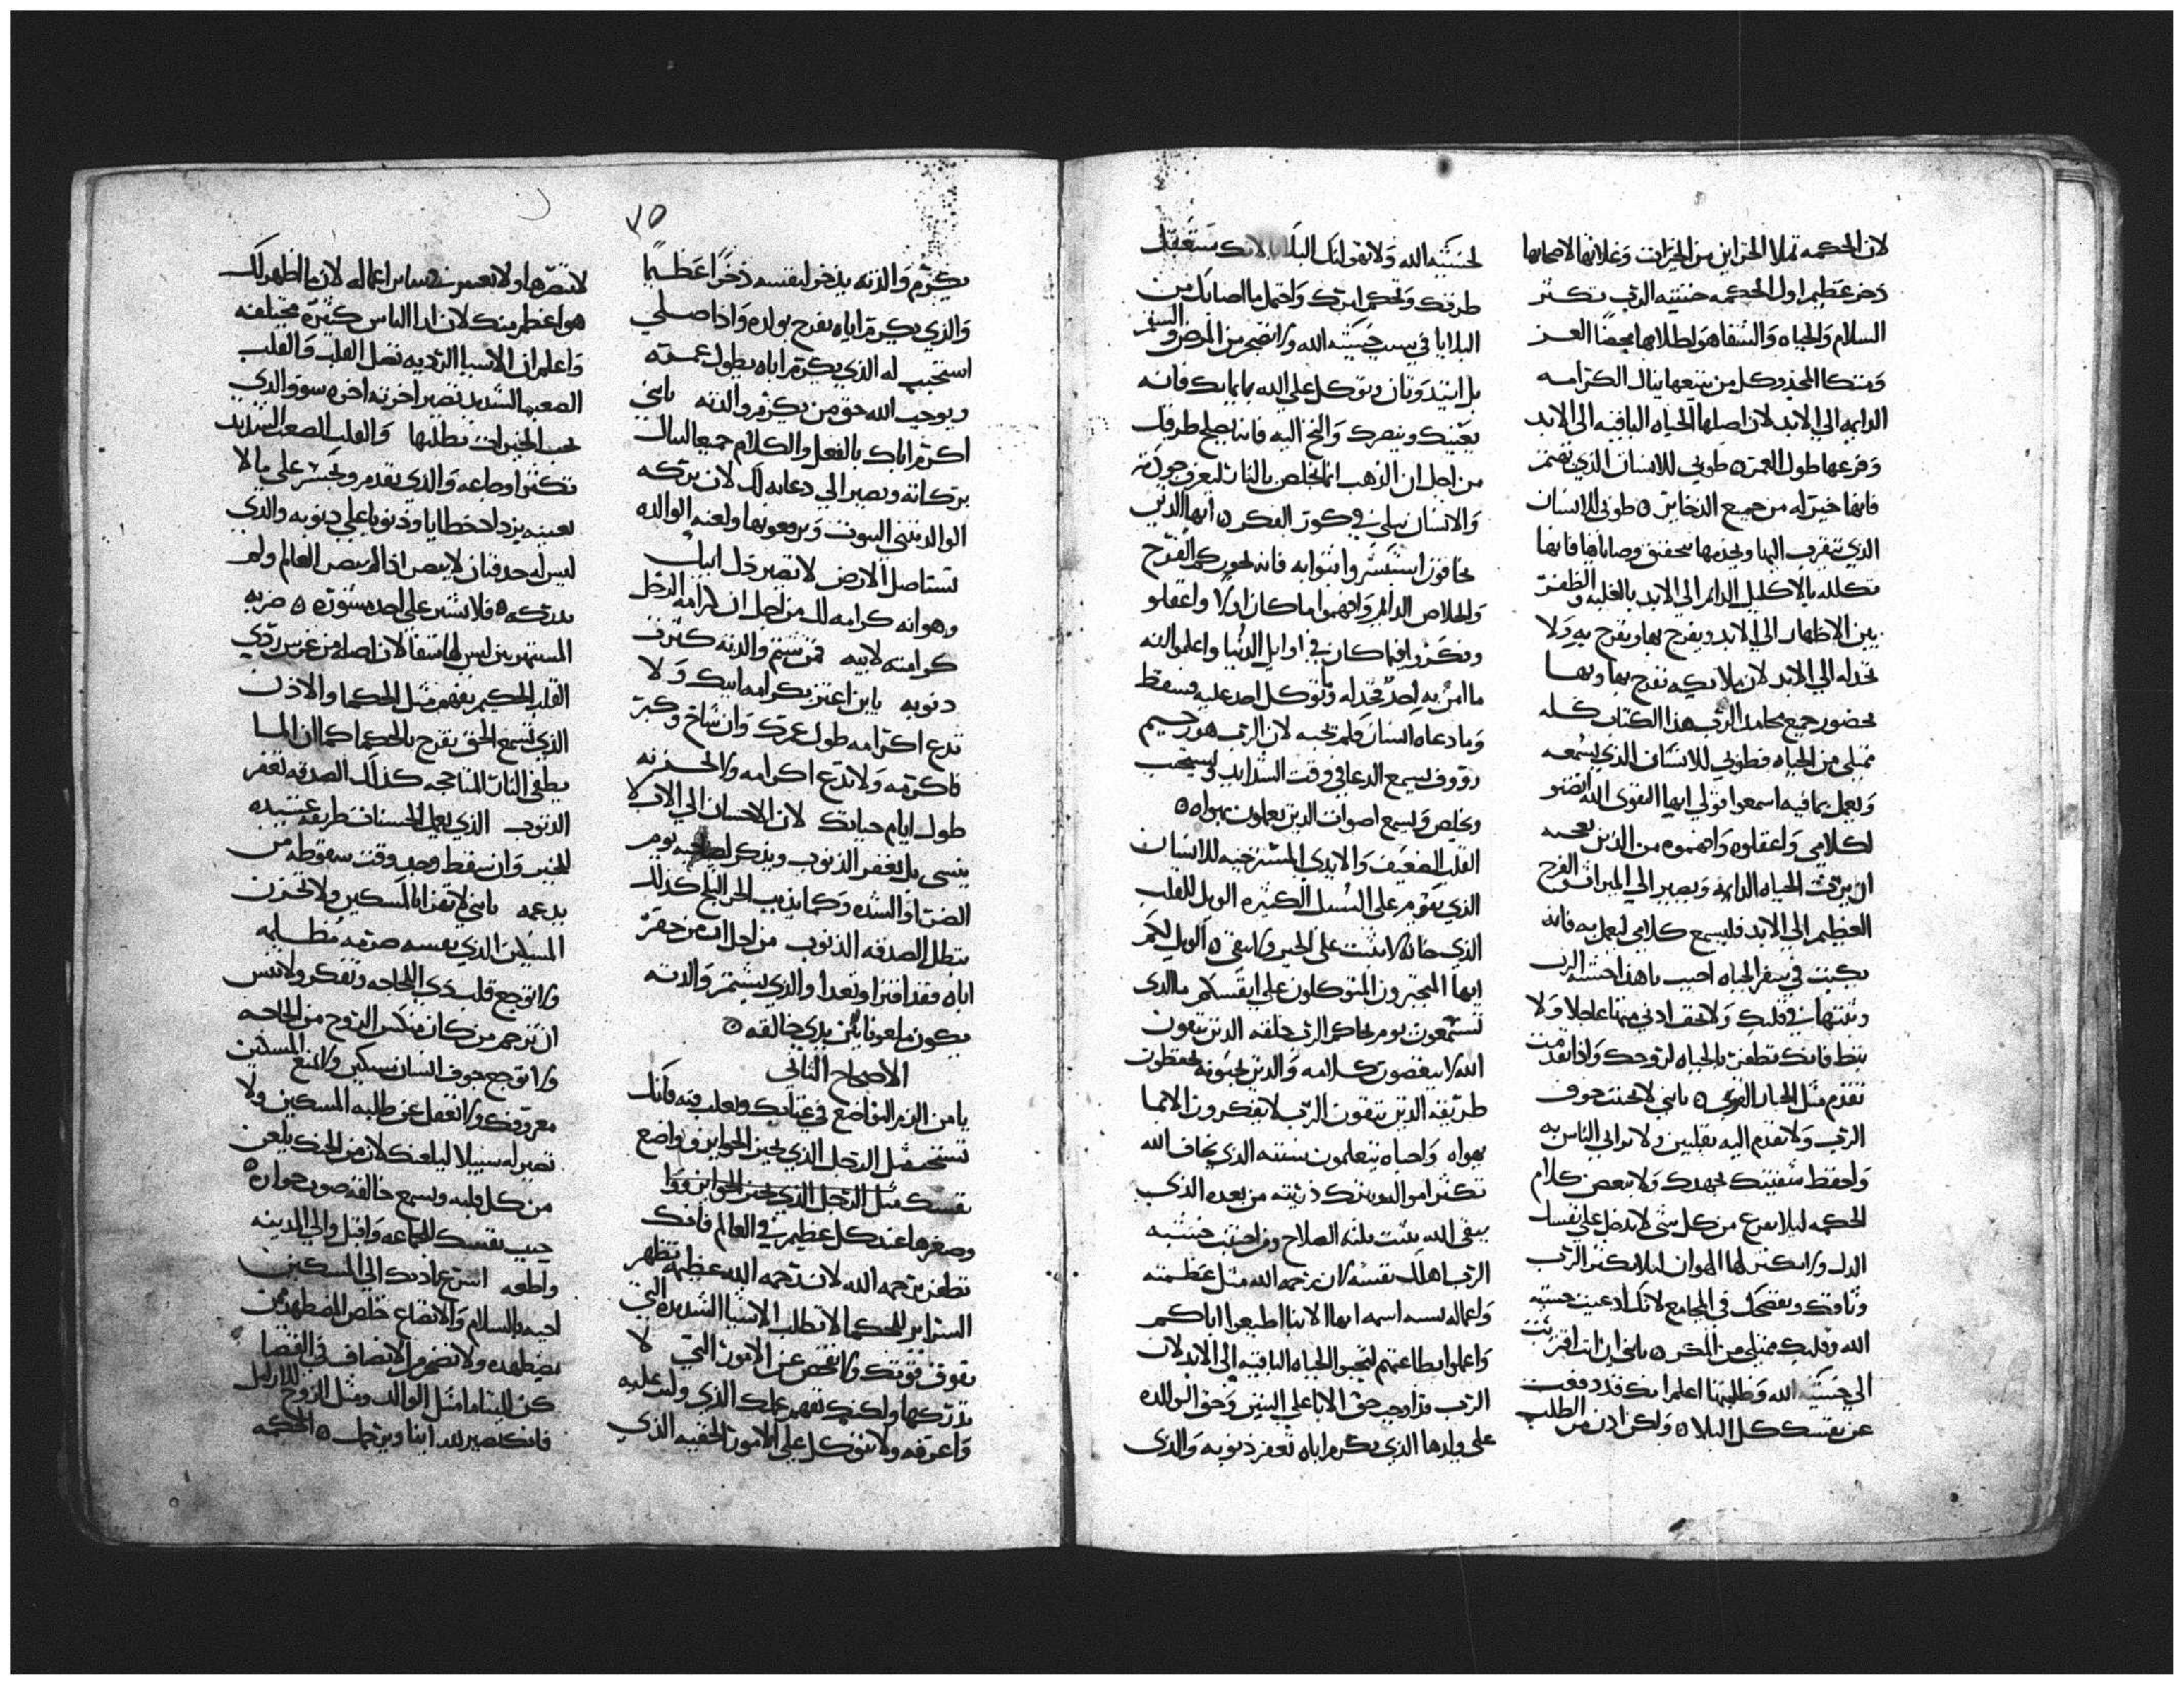 لان الحكمه تملا الخزاين من الخيرات وغلاتها لاصحابها
ذخر عظيم اول الحكمه خشيه الرب تكثر
السلام والحياه والشفا هو لطلابها محضا العز
ومتكا المجد وكل من يتبعها ينال الكرامه
الدايمه الي الابد لان اصلها الحياه الباقيه الى الابد
وفرعها طول العمر ۞ طوبي للانسان الذي
فانها خير له من جميع الدخاير ۞ طوبي للانسان
الذي يتقرب اليها ويخدمها بتحقيق وصاياها فانها
تكلله بالاكليل الدايم الي الابد بالغلبه والظفر
بين الاظهار الي الابد ويفرح بها وتفرح به ولا
تخدله الي الابد لان ملايكه تفرح بها وبها
بحضور جميع محامد الرب هذا الكتاب كله
ممتلي من الحياه فطوبي للانسان الذي يسمعه
ويعمل بما فيه اسمعوا قولي ايها اتقوى الله انصتو
لكلامي واعقلوه وافهموه من الذين
ان يرث الحياه الدايمه ويصير الي الميراث والفرح
العظيم الي الابد فليسمع كلامي ليعمل به فانه
يكتب في سفر الحياه احبب يا هذا خشيه الرب
وثبتها في قلبك ولا تخف ادني منها عاجلا ولا
تبط فانك تظفر بالحياه لروحك واذا تقدمت
تقدم مثل الجبار القوي ۞ يابني لا تخنث خوف
الرب ولا تقدم اليه بقلبين ولا تراي الناس به
واحفظ شفتيك بجهدك ولا تبغض كلام
الحكمه ليلا تفزع من كل شي لا تدخل علي نفسك
الدل ولا تكثر لها الهوان ليلا يكثر الرب
وثاقك ويفضحك في المجامع لانك ادعيت خشيه
الله وقلبك ممتلي من المكر ۞ يابني ان انت اقتربت
الي خشيه الله وطلبتها اعلم انك قد دفعت
عن نفسك كل البلا ۞ ولكن ادن من الطلب
لخشيه الله ولا تهرب لانك ستعتدل
طرقك وتحكم امرك واحتمل ما اصابك من
البلايا في سبب خشيه الله ولا تضجر من المرض والسقم
بل اتيد وتان وتوكل علي الله بايمانك فانه
يعينك وينصرك والتج اليه فانه يصلح طرقك
من اجل ان الذهب انما يخلص بالنار ليعرف جودته
والانسان يبلي في كور الفكر ۞ ايها الذين
تخافون استبشروا بثوابه فانه يحوزكم الفرح
والخلاص الدايم وافهموا ما كان اولا واعقلو
وتفكروا فيما كان في اوايل الدنيا واعلموا انه
ما امن به احد فخدله ولا توكل احد عليه فسقط
وما دعاه انسان فلم يجبه لان الرب هو رحيم
رووف يسمع الدعا في وقت الشدايد ويستجب
ويخلص ويسمع اصوات الدين يعملون بهواه ۞
القلب الضعيف والايدي المسترخيه للانسان
الذي يقوم علي السبل الكثيره الويل للقلب
الذي حاله لا يثبت علي الخير ولا يبقي ۞ الويل لكم
ايها المتجبرون المتوكلون علي انفسكم ما الدي
تصنعون يوم يحاكم الرب خلقه الدين يتقون
الله لا يبغضون كلامه والدين يحبونه يحفظون
طريقه الدين يتقون الرب لا يفكرون الا بما
يهواه واحباه يتعلمون سنته الذي يخاف الله
تكثر امواله ويترك ذريته من بعده الذي
يتقي الله يثبت الصلاح ومن اجتنب خشيه
الرب اهلك نفسه لان رحمه الله مثل عظمته
واعماله تشبه اسمه ايها الابنا اطيعوا اباكم
واعملوا بطاعتهم لتحيوا الحياه الباقيه الي الابد لان
الرب قد اوجب حق الابا علي البنين وحق الوالده
علي ولدها الذي يكرم اباه تغفر ذنوبه والذي
٧٥
يكرم والدته يدخر لنفسه ذخرا عظيما
والذي يكرم اباه يفرح بولده واذا صلي
استجيب له الذي يكرم اباه يطول عمره
ويوجب الله حق من يكرم والدته يابني
اكرم اباك بالفعل والكلام جميعا لينالك
بركاته ويصير الي دعايه لك لان بركه
الوالد تثني البيوت وترفعونها ولعنه الوالده
تستاصل الارض لا تصير ذل ابيك
وهوانه كرامه لك من اجل ان كرامه الرجل
كرامته لابيه فمن شتم والدته كثرت
دنوبه يابن اعتز بكرامه ابيك ولا
تدع اكرامه طول عمرك وان شاخ وكبر
فاكرمه ولا تدع اكرامه ولا تحزنه
طول ايام حياتك لان الاحسان الي الاب لا
ينسي بل يغفر الذنوب ويذكر لصاحبه يوم
الضر والشده وكما يذيب الحر الثلج كذلك
تبطل الصدقه الذنوب من اجل ان من حقر
اباه فقد افترا وتعدا والذي يشتم والدته
يكون ملعونا بين يدي خالقه ۞
الاصحاح الثاني
يا من الزم التواضع في غناك ولعله فانك
تستحب مثل الرجل الذي يخزن الجواين وواضع
نفسك مثل الرجل الذي يخزن الجواين ووا
وصغرها عند كل عظيم في العالم فانك
تظفر برحمه الله لان رحمه الله عظيمه تظهر
السراير للحكما لا تطلب الاشيا الشديده التي
تفوق قوتك ولا تفحص عن الامور التي لا
تدركها ولكنك تفهم عملك الذي وليت عليه
واعرفه ولا تتوكل علي الامور الخفيه الذي
لا تنصرها ولا تعسر في ساير اعماله لان ما اظهر لك
هو اعظم منك لان ارا الناس كثيره مختلفه
واعلم ان الاشيا الرديه تضل القلب والقلب
الصعب الشديد تصير اخرته اخره سوو والدي
يحب الخيرات يطلبها والقلب الصعب الشديد
تكثر اوجاعه والذي يقدم ويجسر علي ما لا
يعنيه يزداد خطايا وذنوبا علي دنوبه والدي
ليس له حدقتان لا يبصر اذا لم يبصر العالم ولم
يدركه ۞ فلا تشير علي احد مشوره ۞ ضربه
المستهزيين ليس لها شفا لان اصلها من غرس ردي
القلب الحكيم يفهم مثل الحكما والاذن
الذي تسمع الحق يفرح بالحكما كما ان الما
يطفي النار المتاججه كذلك الصدقه تغفر
الدنوب الذي يعمل الحسنات طريقه عتيده
للخير وان سقط وجد وقت سقوطه من
يدعمه يابني لا تهزا بالمسكين ولا تحزن
المسكين الذي نفسه مظلمه
ولا توجع قلب ذي الحاجه وتفكر ولا تنس
ان ترحم من كان منكس الروح من الحاجه
ولا توجع جوف انسان مسكين ولا تمنع المسكين
معروفك ولا تغفل عن طلبه المسكين ولا
تصير له سبيلا ليلعنك لان من الحنك يلعن
من كل قلبه ويسمع خالقه صوت جواره ۞
حبب نفسك للجماعه واقبل والي المدينه
واطعه استرع اذنك الي المسكين
اجبه بالسلام والاتضاع خلص المضطهد من
يضطهده ولا تضجر من الانصاف في القضا
كن لليتاما مثل الوالد ومثل الزوج للارامل
فانك تصير لله ابنا ويرحمك ۞ الحكمه